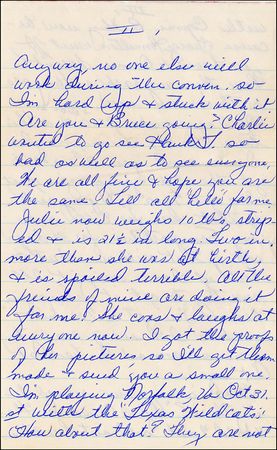 II
Anyway, no one else will
work during the conven. so
I'm hard up & stuck with it
Are you & Bruce going? Charlie
wanted to go see Hank J. so
bad as well as to see everyone.
We are all fine & hope you are
the same. Tell all hello for me.
Julie now weighs 10 lbs, strip-
ed & is 21½ in long. Two in,
more than she was at birth,
& is spoiled terrible. All the
friends of mine are doing it
for me! She coos & laughs at
everyone now. I got the proofs
of her pictures, so I'll get them
made & send you a small one
I'm playing Norfolk, Va Oct 31,
st with the Texas Wildcats!
How about that? They are not